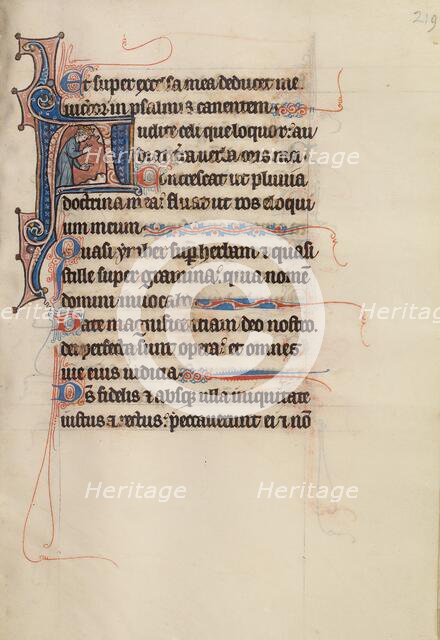 219
Et super excelsa mea deducet me
uictor in psalmis canentem
Audite celi que loquor: au
diat terra uerba oris mei
Concrescat ut pluuia
doctrina mea: fluat ut ros eloqui
um meum
Quasi ymber super herbam & quasi
stille super gramina: quia nomē
domini inuocabo
Date magnificentiam deo nostro:
dei perfecta sunt opera: et omnes
uie eius iudicia
Dˢ fidelis & absque ulla iniquitate
iustus & rectus: peccauerunt ei & nō
Heritage
Heritage
Heritage
Heritage
Heritage
Heritage
Heritage